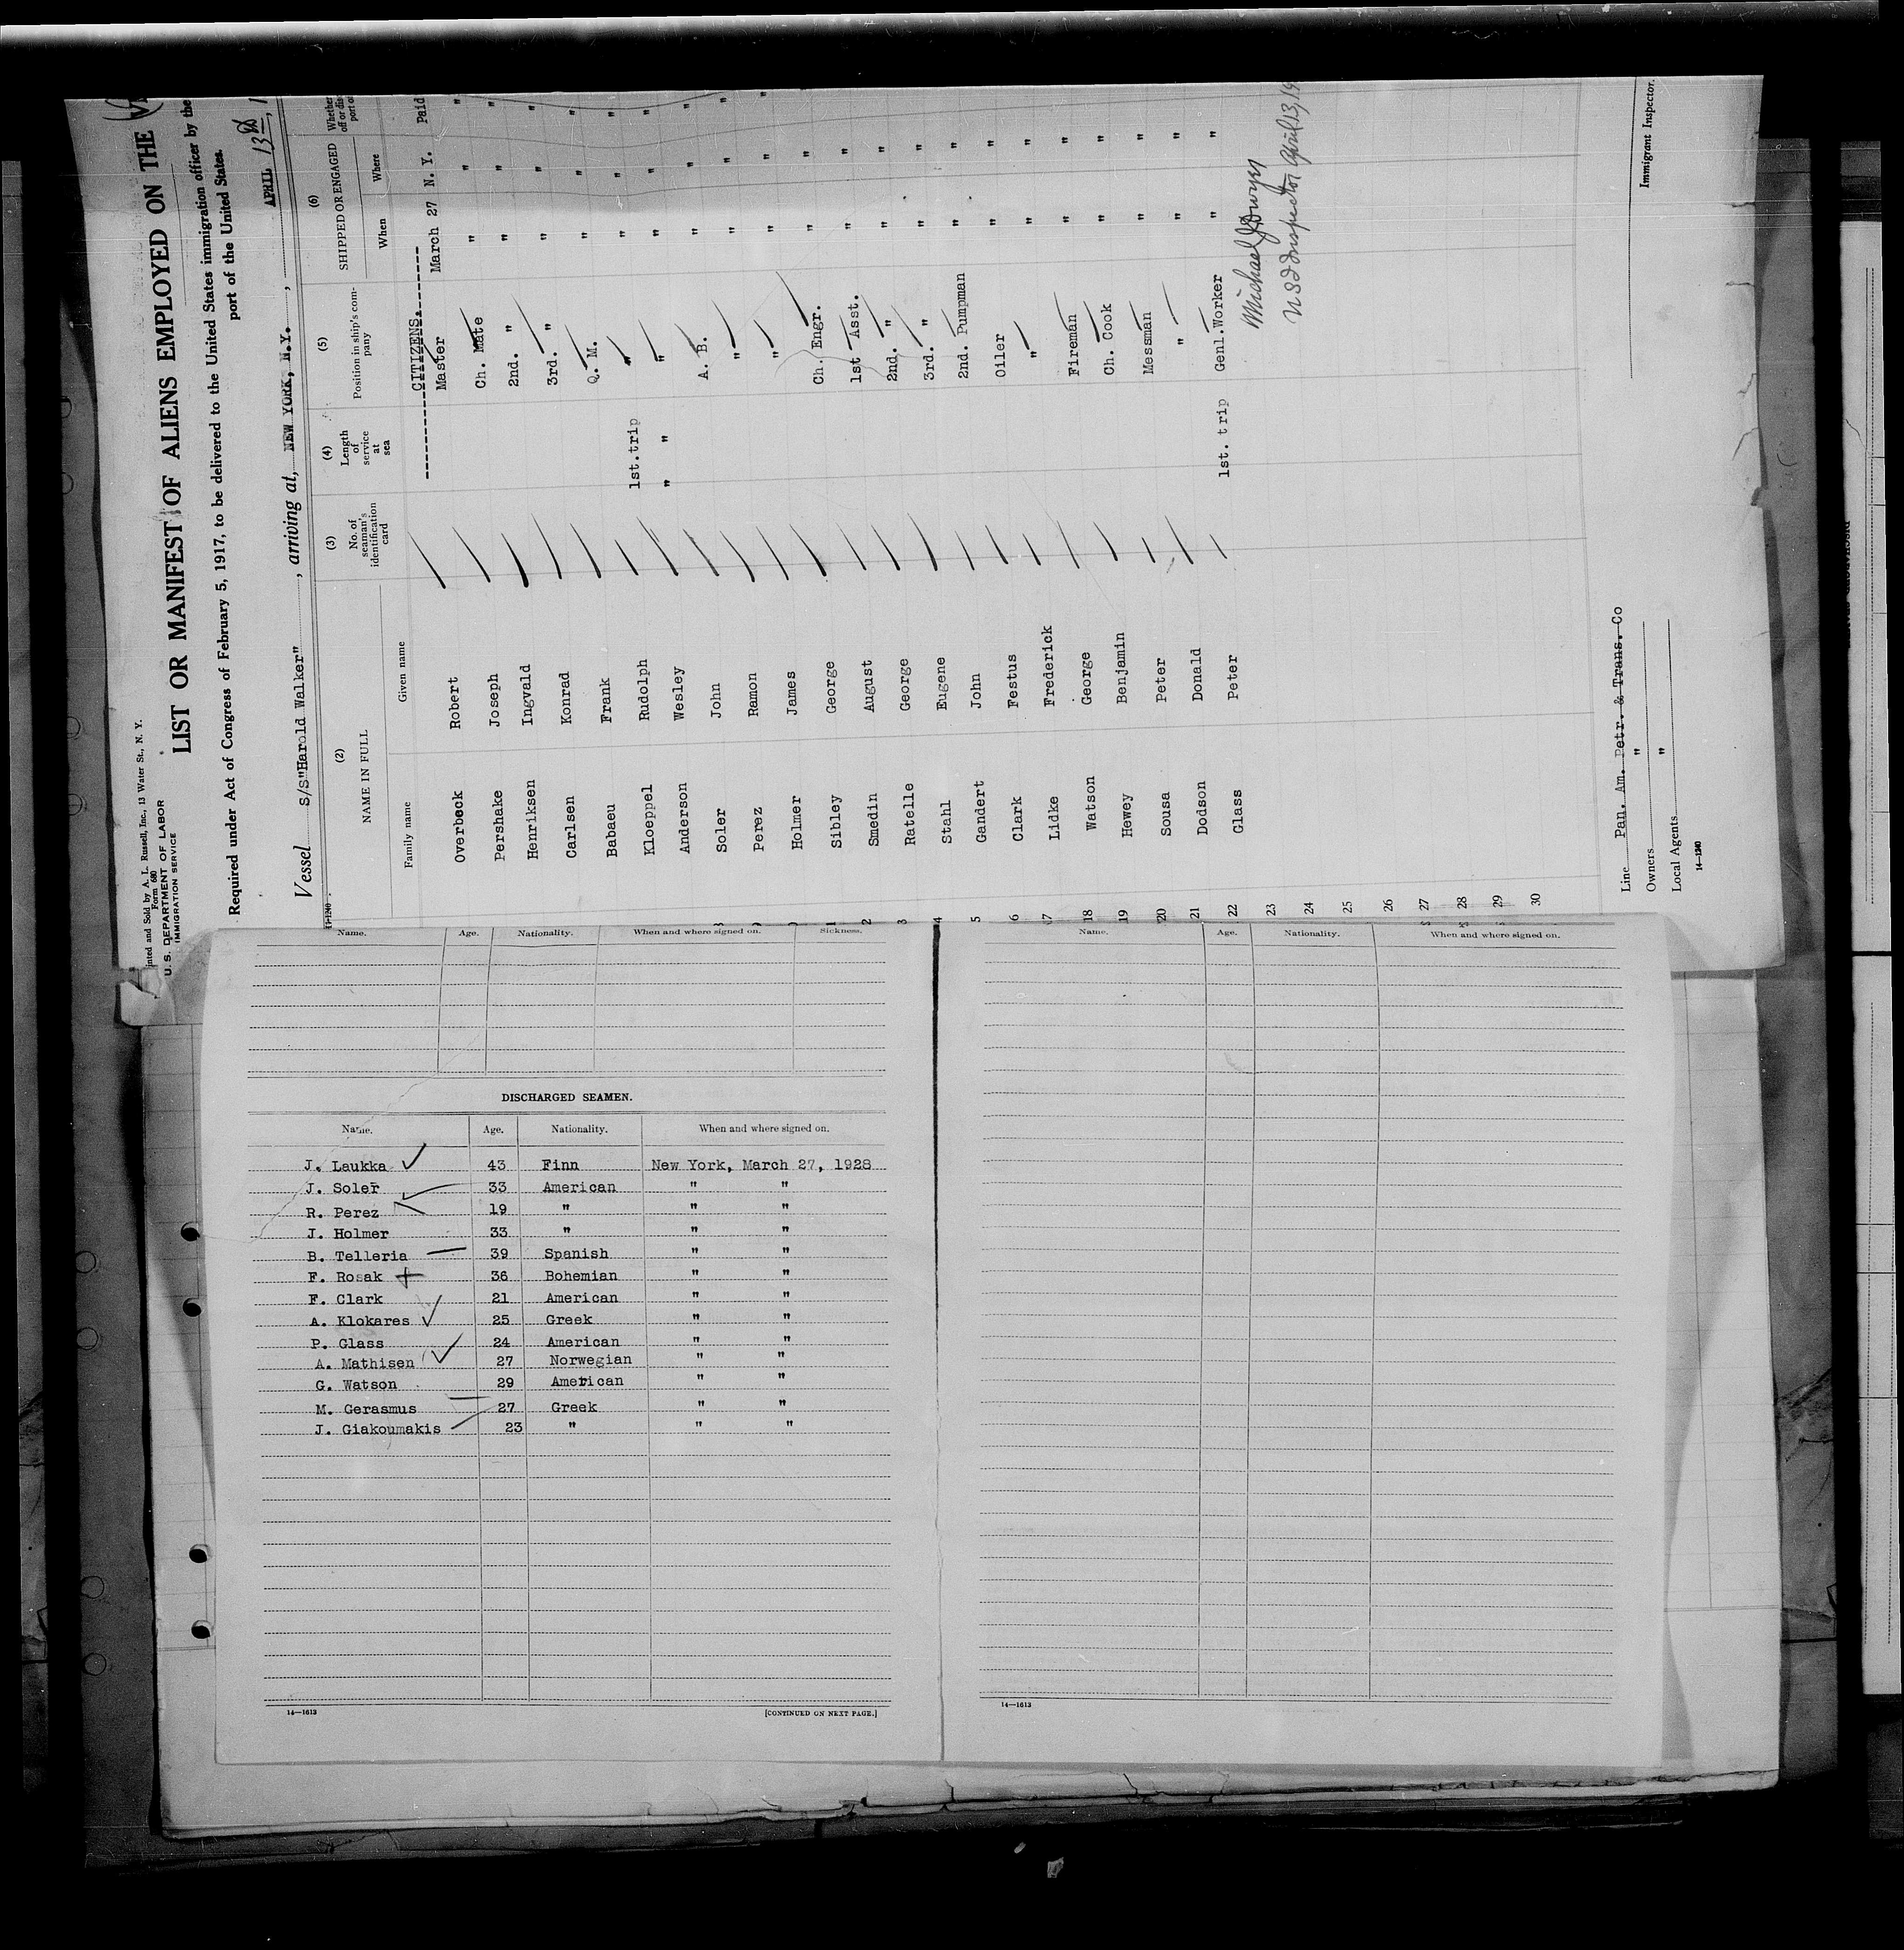 Printed and Sold by A. L. Russell, Inc., 13 Water St., N. Y.
Form 680
U. S. DEPARTMENT OF LABOR
IMMIGRATION SERVICE
LIST OR MANIFEST OF ALIENS EMPLOYED ON THE
Required under Act of Congress of February 5, 1917, to be delivered to the United States immigration officer by the
port of the United States.
Vessel S/S"Harold Walker", arriving at, NEW YORK, N.Y., APRIL 13th, 1
14-1240
(2) (3) (4) (5) (6)
NAME IN FULL No. of seaman's identification card Length of service at sea Position in ship's company SHIPPED OR ENGAGED Whether
Family name Given name When Where
CITIZENS.
Overbeck Robert Master March 27 N. Y. Paid
Pershake Joseph Ch. Mate " " "
Henriksen Ingvald 2nd. " " " "
Carlsen Konrad 3rd. " " " "
Babaeu Frank Q. M. " " "
Kloeppel Rudolph 1st.trip " " " "
Anderson Wesley " " " " " "
8 Soler John A. B. " " "
9 Perez Ramon " " " "
0 Holmer James " " " "
1 Sibley George Ch. Engr. " "
2 Smedin August 1st Asst. " "
3 Ratelle George 2nd. " " "
4 Stahl Eugene 3rd. " " "
5 Gandert John 2nd. Pumpman " "
6 Clark Festus Oiler " "
17 Lidke Frederick " " "
18 Watson George Fireman " "
19 Hewey Benjamin Ch. Cook " "
20 Sousa Peter Messman " "
21 Dodson Donald " " "
22 Glass Peter 1st. trip Genl.Worker " "
23
24
25
26
27
28
29
30
Michael J Dwyer
Inspector April 13, 19
Line Pan. Am. Petr. & Trans. Co
Owners "
Local Agents "
14-1240
Immigrant Inspector.
Name. Age. Nationality. When and where signed on. Sickness.
DISCHARGED SEAMEN.
Name. Age. Nationality. When and where signed on.
J. Laukka 43 Finn New York, March 27, 1928
J. Soler 33 American " "
R. Perez 19 " " "
J. Holmer 33 " " "
B. Telleria 39 Spanish " "
F. Rosak 36 Bohemian " "
F. Clark 21 American " "
A. Klokares 25 Greek " "
P. Glass 24 American " "
A. Mathisen 27 Norwegian " "
G. Watson 29 American " "
M. Gerasmus 27 Greek " "
J. Giakoumakis 23 " " "
14—1613 [CONTINUED ON NEXT PAGE.]
Name. Age. Nationality. When and where signed on.
14—1613